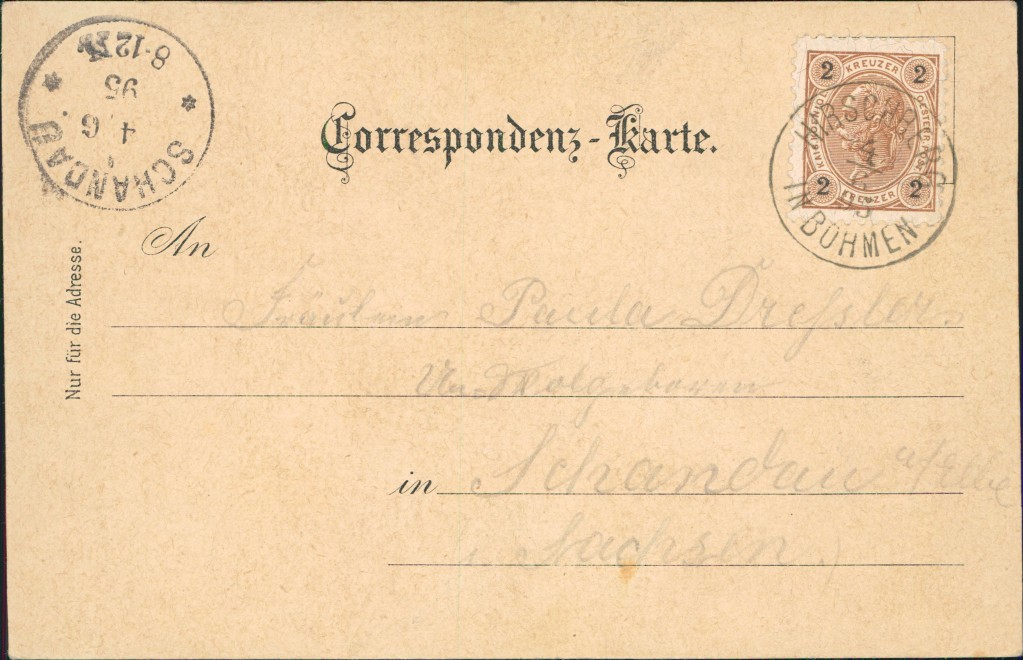 SCHANDAU
4 6.
95
8-12 V
Correspondenz-Karte.
2 KREUZER 2
2 KREUZER 2
IN BÖHMEN
An
Nur für die Adresse.
Fräulein Paula Dreſsler.
Wolgeboren
in Schandau a/Elbe
Sachsen